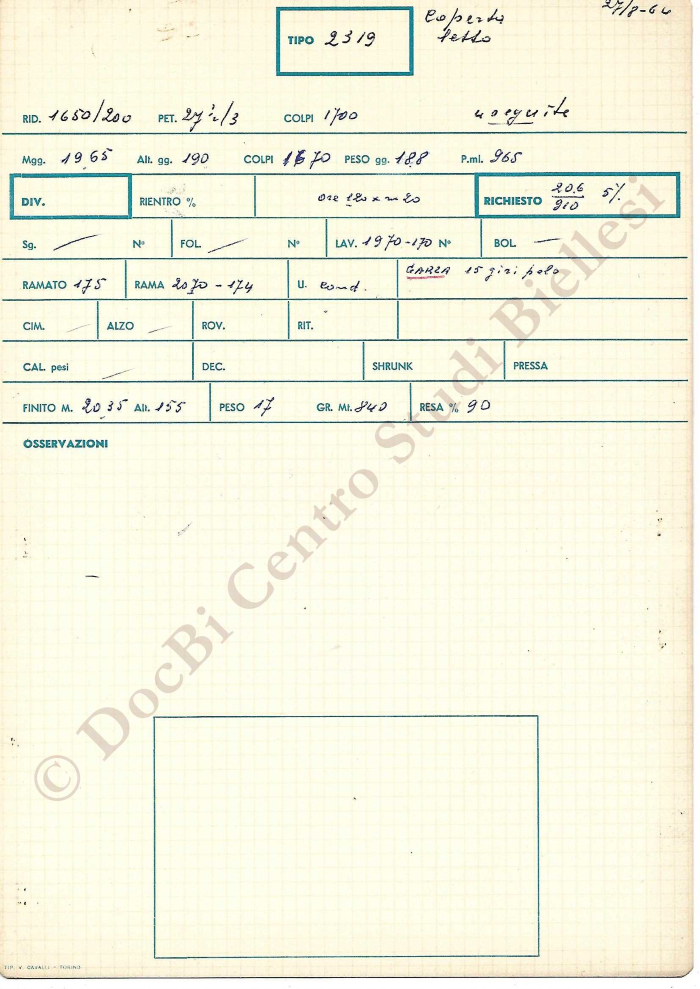 27/8-64
TIPO 2319 Coperta
letto
RID. 1650/200 PET. 27½/3 COLPI 1700
Mgg. 19.65 Alt. gg. 190 COLPI 1670 PESO gg. 18.8 P.ml. 965
DIV. RIENTRO % ore 120 x m 20 RICHIESTO 20.6/910 5%
Sg. Nº FOL. Nº LAV. 1970-170 Nº BOL. —
RAMATO 175 RAMA 20.70 - 174 U. cond. GARZA 15 giri pelo
CIM. — ALZO — ROV. RIT.
CAL. pesi — DEC. SHRUNK PRESSA
FINITO M. 20.35 Alt. 155 PESO 17 GR. Mt. 840 RESA % 90
OSSERVAZIONI
© DocBi Centro Studi Biellesi
TIP. V. CAVALLI - TORINO